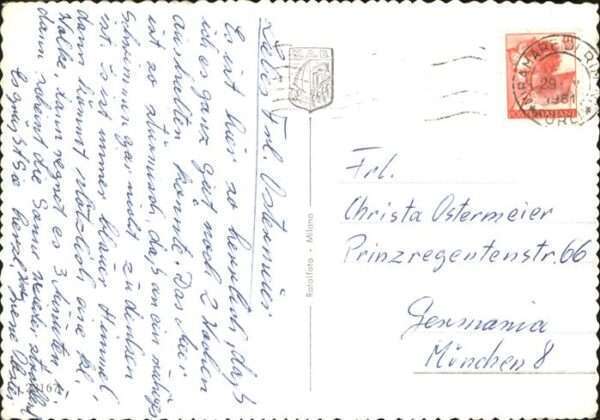 Liebes Frl. Ostermeier
Es ist hier so herrlich, daß
ich es ganz gut noch 2 Wochen
aushalten könnte. Das Meer
ist so stürmisch, daß an ein
Schwimmen gar nicht zu denken
ist. Es ist immer blauer Himmel
dann kommt plötzlich eine kl.
Wolke, dann regnet es 3 Minuten,
dann scheint die Sonne wieder
Es grüßt Sie
Rotalfoto - Milano
MIRAMARE DI RIMINI
29
1961
Frl.
Christa Ostermeier
Prinzregentenstr. 66
Germania
München 8